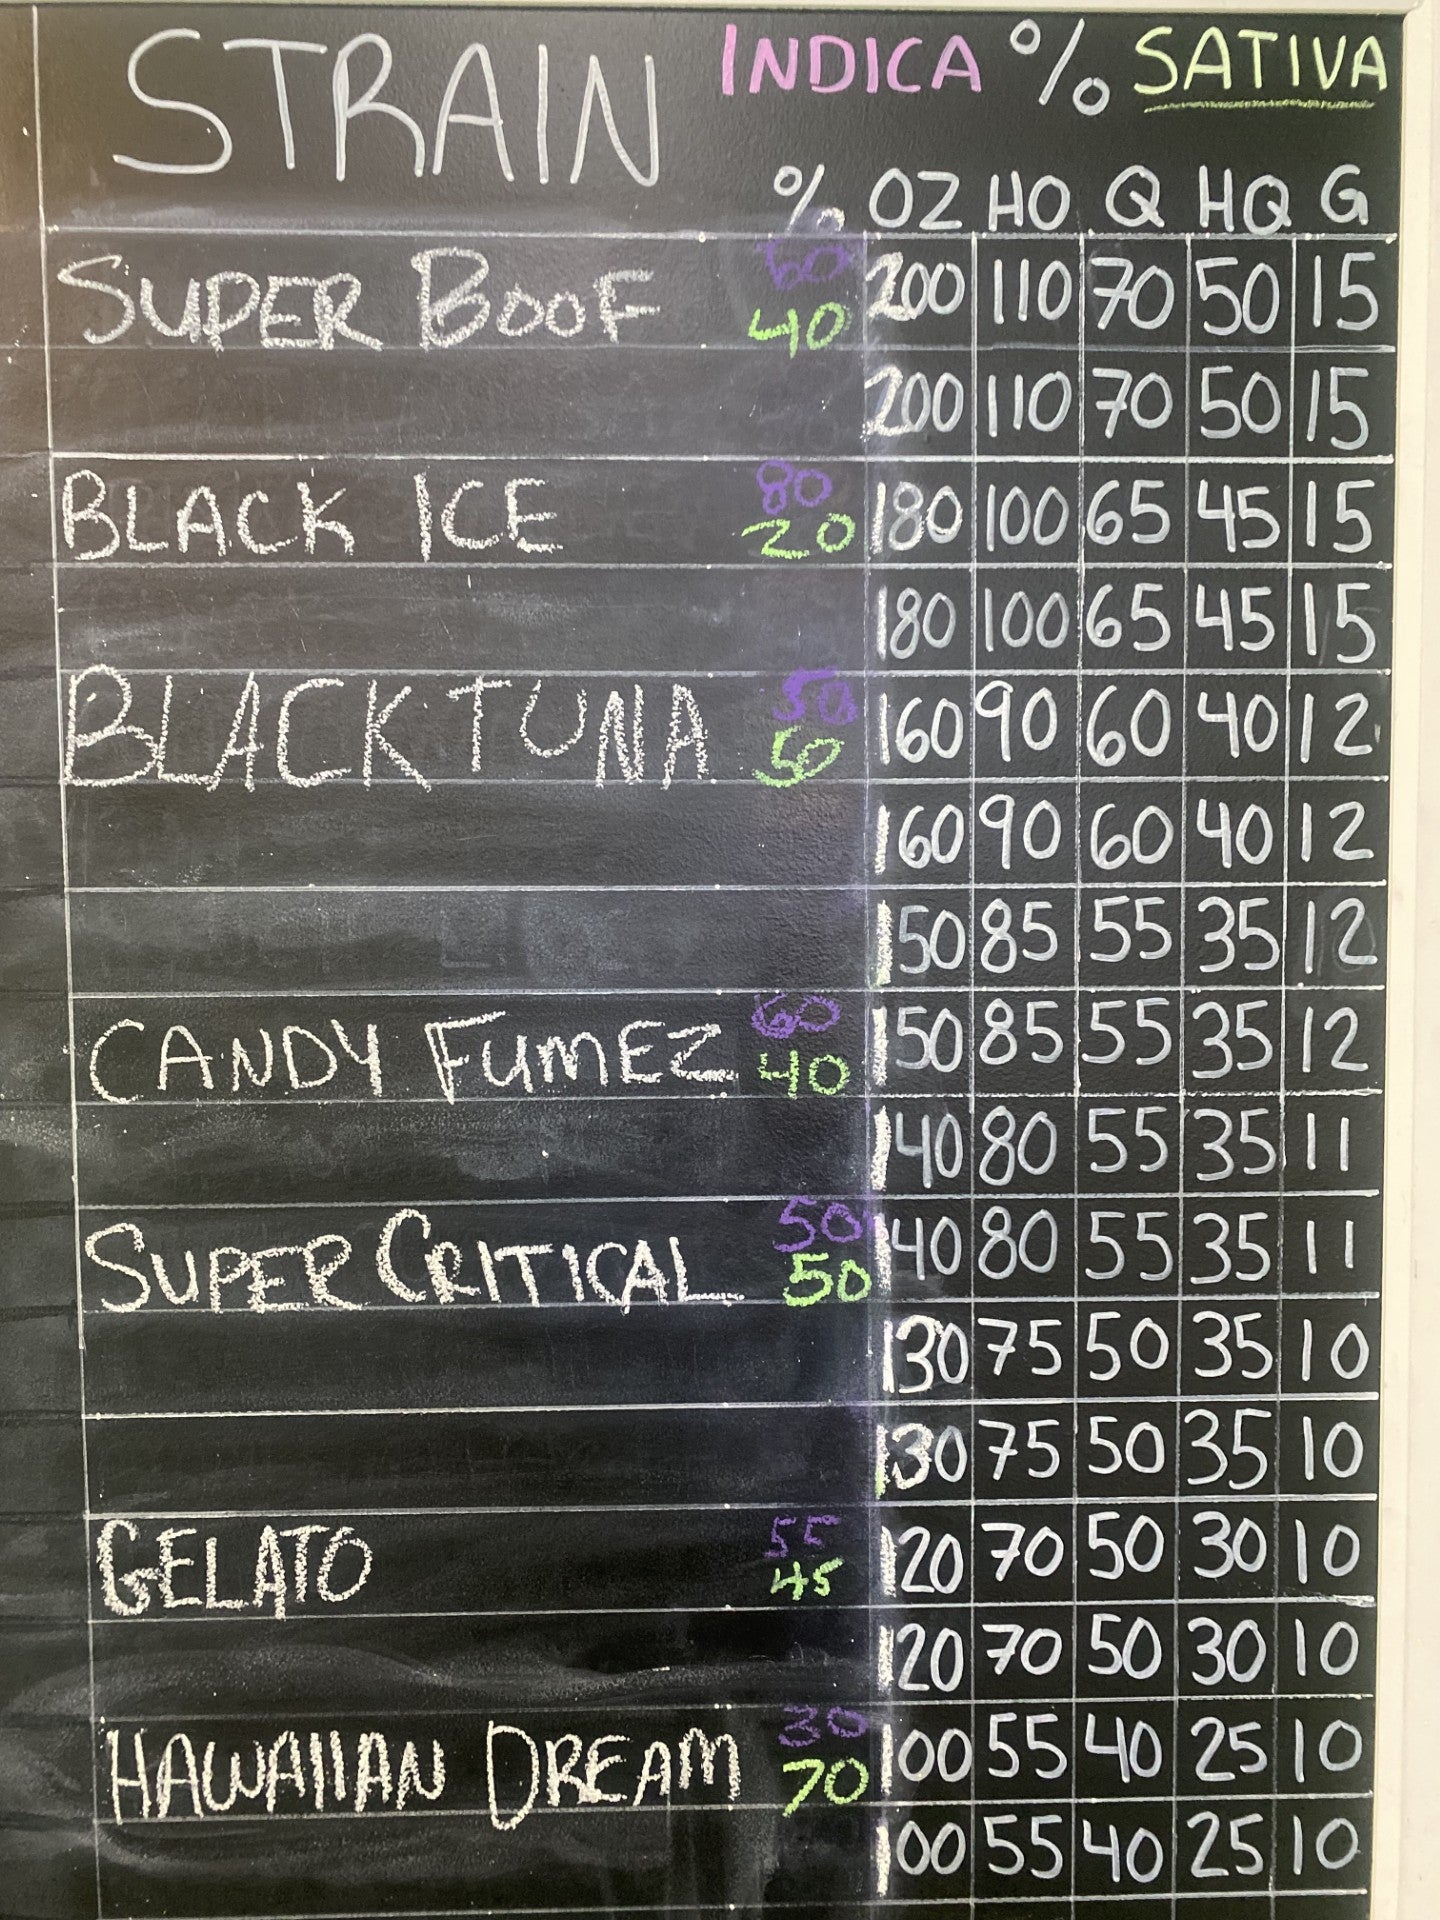 STRAIN INDICA % SATIVA
% OZ HO Q HQ G
SUPER BOOF 60 40 200 110 70 50 15
200 110 70 50 15
BLACK ICE 80 20 180 100 65 45 15
180 100 65 45 15
BLACK TUNA 50 50 160 90 60 40 12
160 90 60 40 12
150 85 55 35 12
CANDY FUMEZ 60 40 150 85 55 35 12
140 80 55 35 11
SUPER CRITICAL 50 50 140 80 55 35 11
130 75 50 35 10
130 75 50 35 10
GELATO 55 45 120 70 50 30 10
120 70 50 30 10
HAWAIIAN DREAM 30 70 100 55 40 25 10
100 55 40 25 10